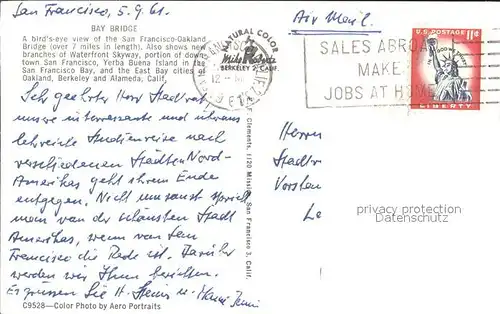 San Francisco, 5.9.61.
BAY BRIDGE
A bird's-eye view of the San Francisco-Oakland
Bridge (over 7 miles in length). Also shows new
branches of Waterfront Skyway, portion of down-
town San Francisco, Yerba Buena Island in the
San Francisco Bay, and the East Bay cities of
Oakland, Berkeley and Alameda, Calif.
Sehr geehrter Herr Stadtrat
unsere interessante und überaus
lehrreiche Studienreise nach
verschiedenen Städten Nord-
Amerikas geht ihrem Ende
entgegen. Nicht umsonst spricht
man von der schönsten Stadt
Amerikas, wenn von San
Francisco die Rede ist. Darüber
werden wir Ihnen berichten.
Es grüssen Sie H. u.
C9528—Color Photo by Aero Portraits
NATURAL COLOR
Mike Roberts
BERKELEY 2, CALIF.
Clements, 1720 Mission, San Francisco 3, Calif.
Air Mail.
SALES ABROAD
MAKE
JOBS AT HOME
U.S. POSTAGE 11¢
IN GOD WE TRUST
LIBERTY
Herrn
Stadtr
Vorstan
Le
privacy protection
Datenschutz